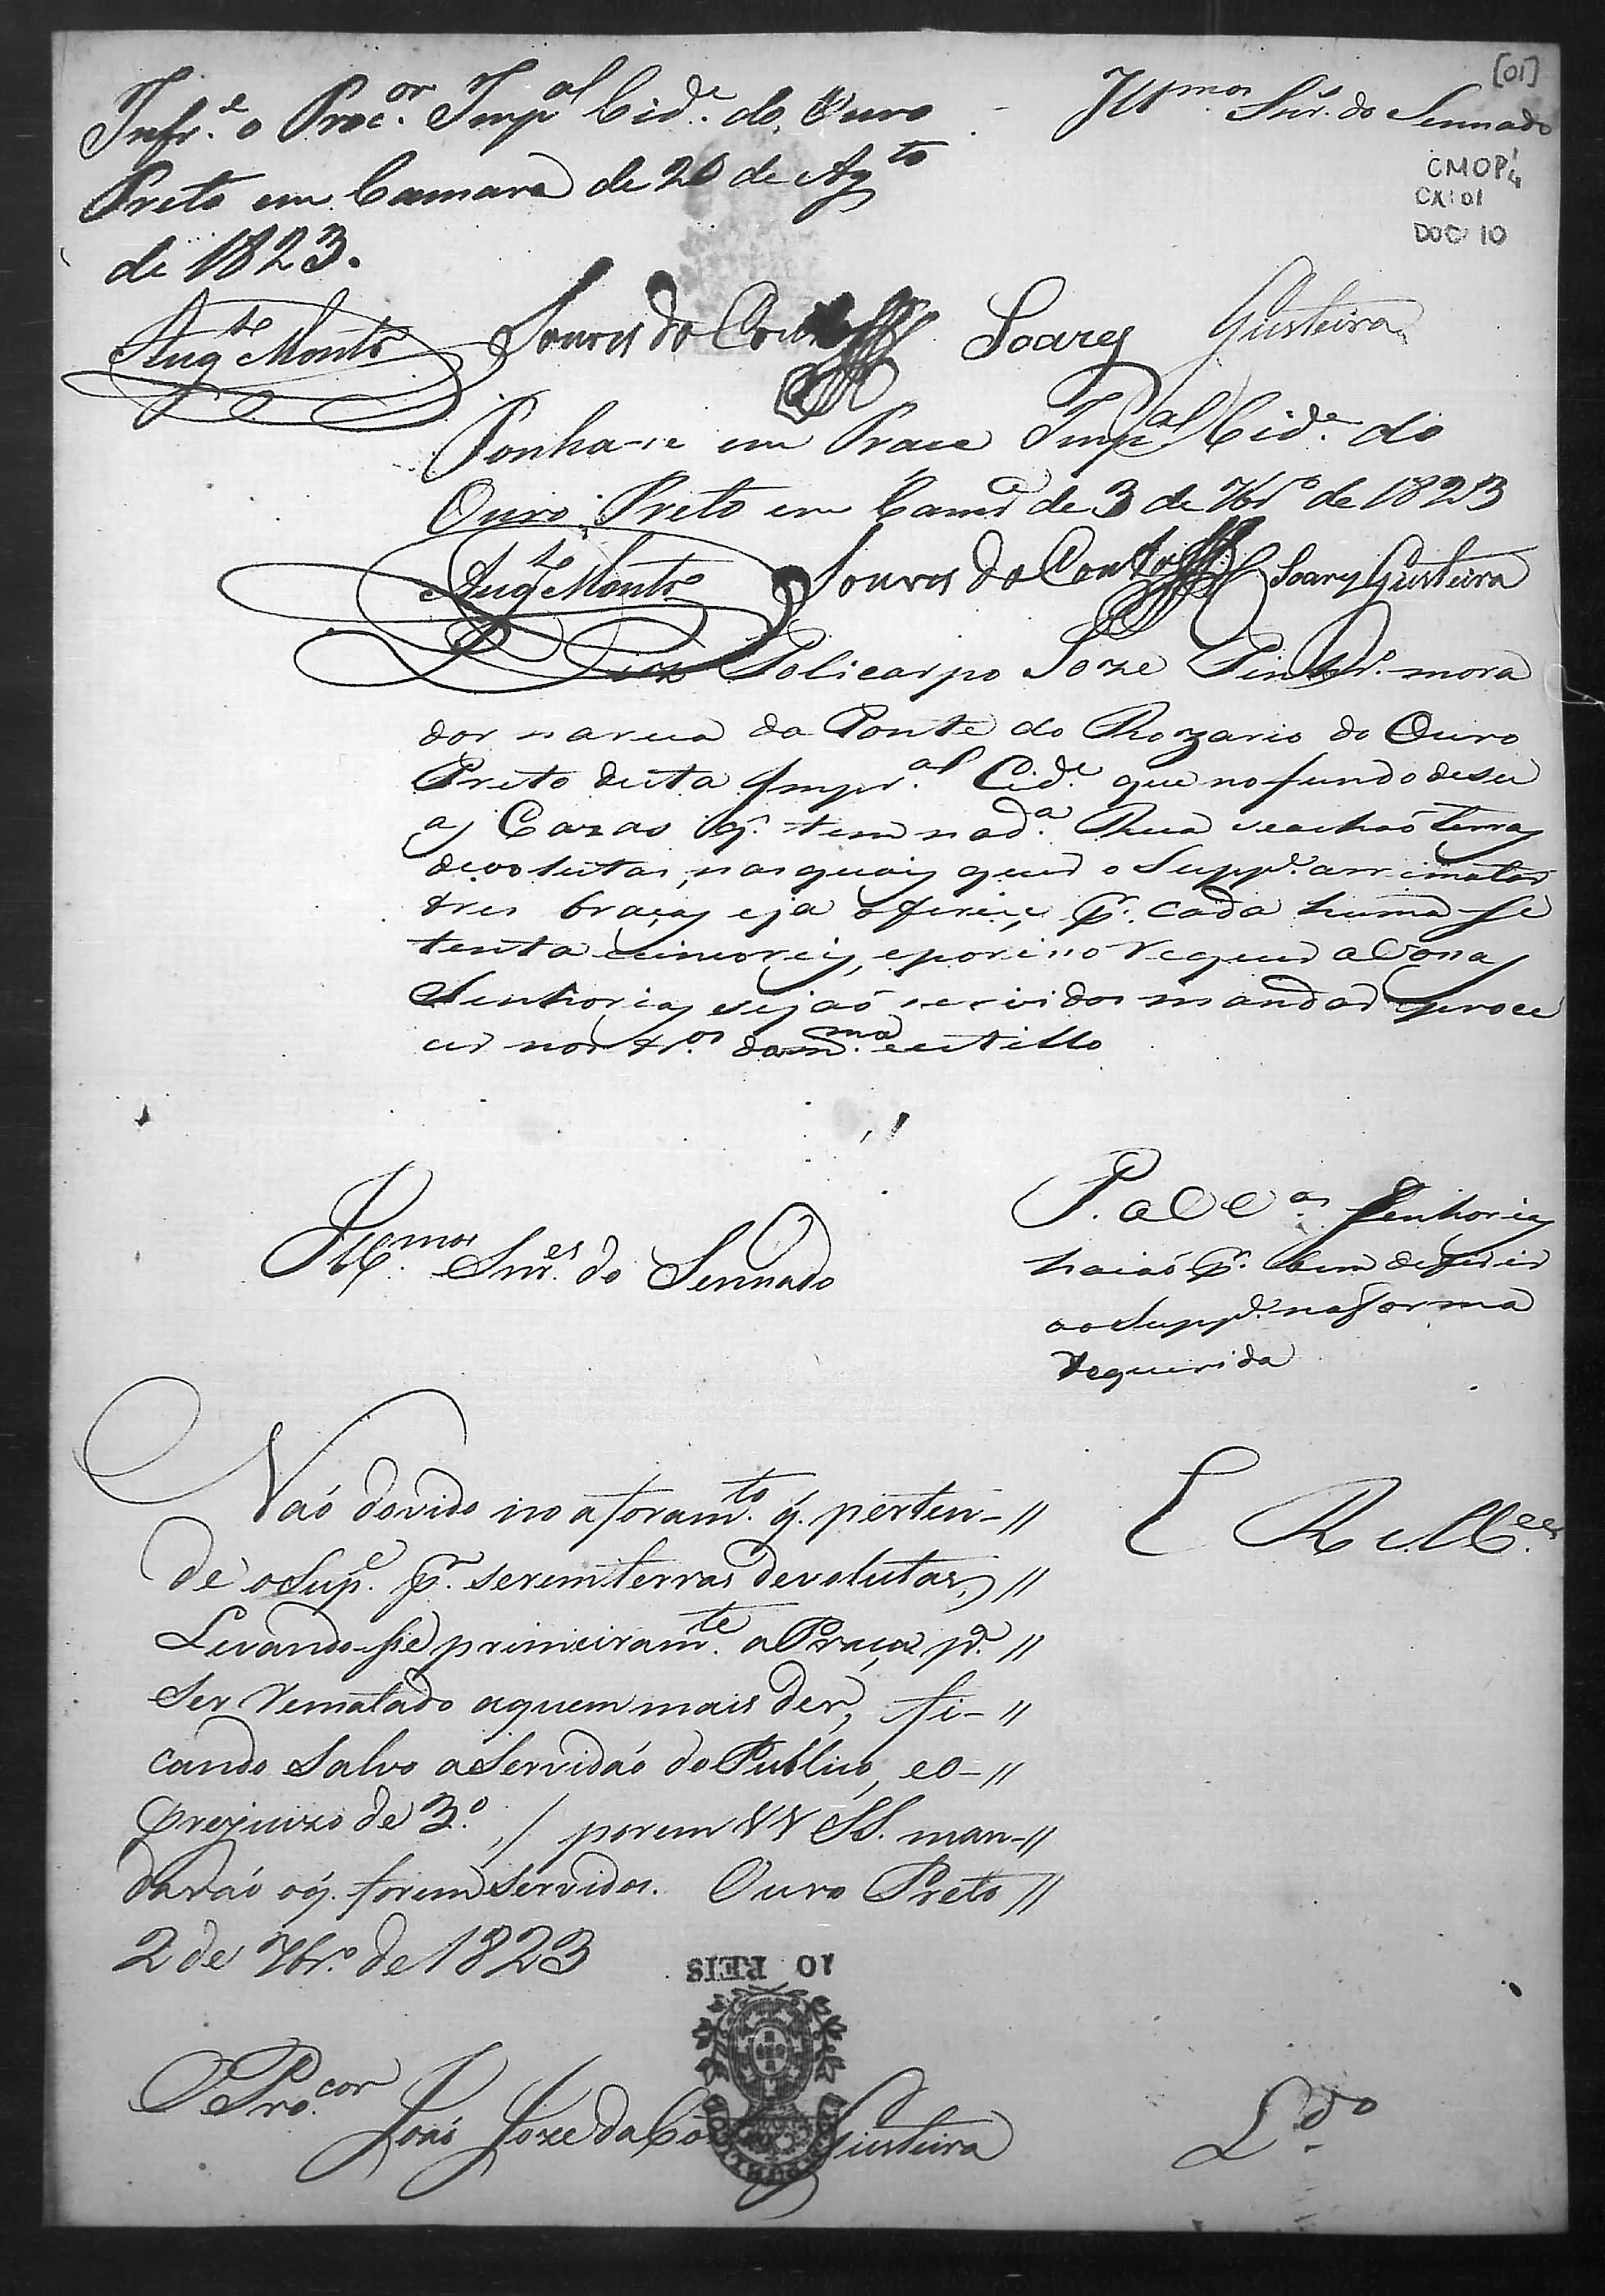 [01]
Illmos Snr. do Sennado
CMOP 1/4
CX: 01
DOC 10
Infe. o Procor. Impal Cide. do Ouro
Preto em Camara de 20 de Agto
de 1823.
Augto Montro Soares Gusteira
Ponha-se em Praca Impal Cide. do
Ouro Preto em Camra de 3 de 7bro de 1823
Augto Montro Soares Gusteira
Diz Policarpo Joze Pinhro. mora
dor na rua da Ponte do Rozario do Ouro
Preto desta Imperal. Cide. que no fundo de su
as Cazas q. tem na da. Rua se achaõ terras
devolutas, nas quais quer o Suppe. arrematar
tres braças e ja oferece pr. cada huma se
tenta e sinco reis, e por isso requer a Vossas
Senhorias sejaõ servidos mandar proce
der nos tros. da mma. e estillo
Illmos. Snres. do Sennado
P. a VVas. Senhorias
hajaõ pr. bem deferir
ao Suppe. na forma
requerida
E R Mces.
Naõ dovido no aforamto. q. perten- //
de o Supe. pr. serem terras devolutas, //
Levando-se primeiramte. a Praça pa. //
ser rematado aquem mais der, fi- //
cando Salvo a Servidaõ do Publico, eo- //
prejuizo de 3o. / porem VV SS. man- //
daraõ oq. forem servidos. Ouro Preto //
2 de 7bro. de 1823
10 REIS
O Procor. Joaõ Joze da Gusteira
Ldo.